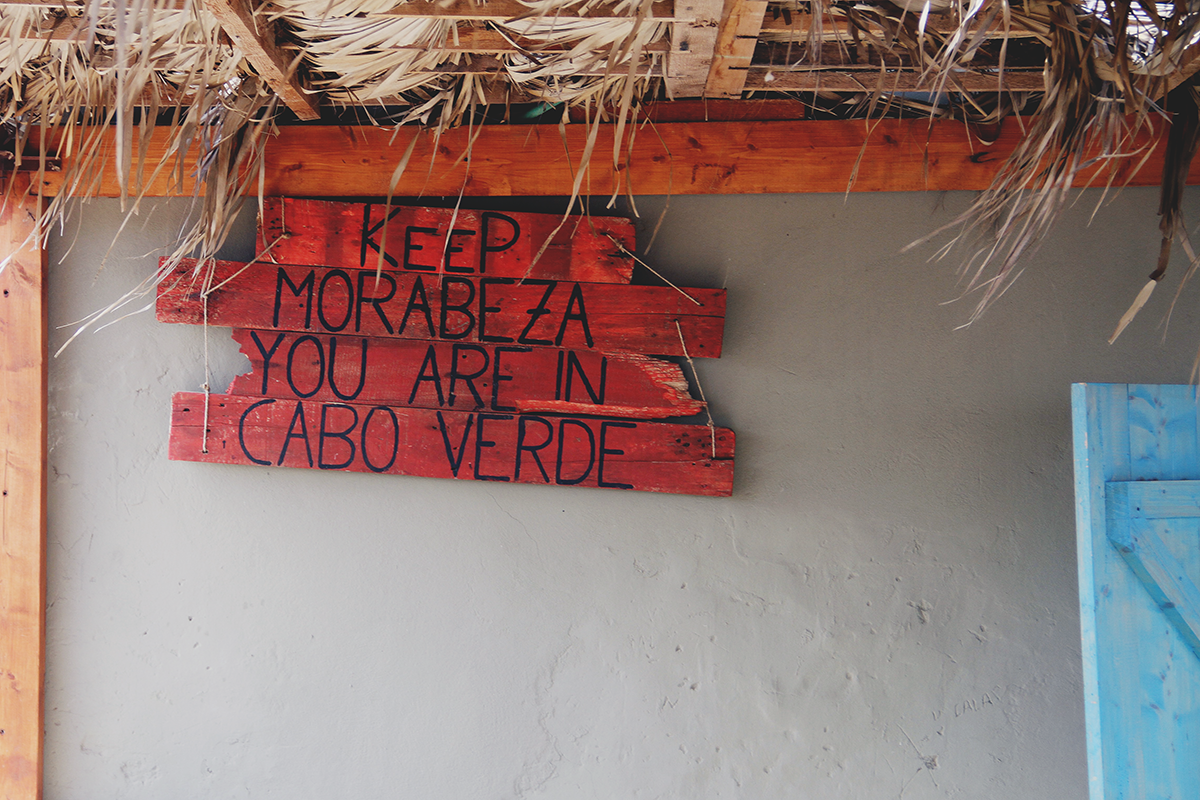 KEEP
MORABEZA
YOU ARE IN
CABO VERDE